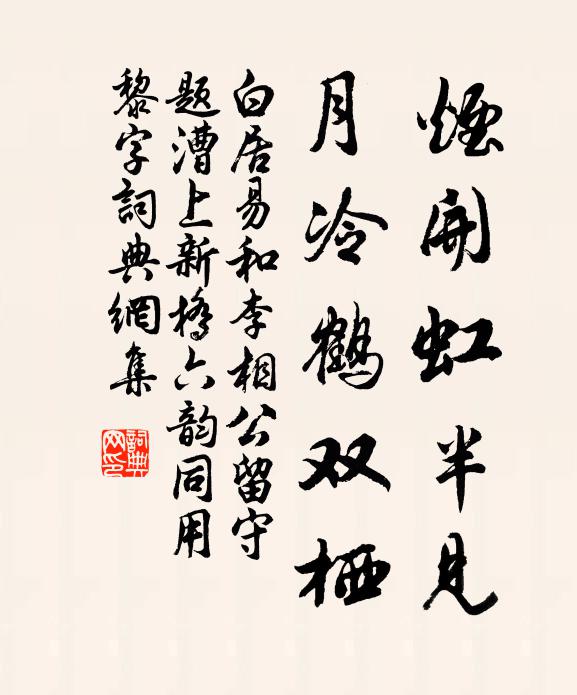 煙開虹半見
月冷鶴双栖
白居易和李相公留守
題漕上新橋六韵同用
黎字詞典網集
詞典
网印